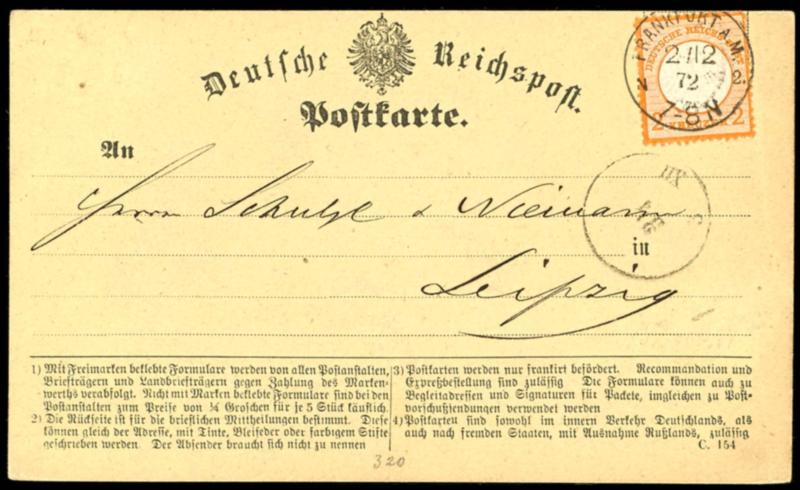 Deutsche Reichspost.
Postkarte.
FRANKFURT A.M.
2 12
72
7-8 N
2.
DEUTSCHE REICHS
2 KREUZER 2
An
Herrn Schulze & Niemann
XII
in
Leipzig
1) Mit Freimarken beklebte Formulare werden von allen Postanstalten,
Briefträgern und Landbriefträgern gegen Zahlung des Marken-
werths verabfolgt. Nicht mit Marken beklebte Formulare sind bei den
Postanstalten zum Preise von ¼ Groschen für je 5 Stück käuflich.
2) Die Rückseite ist für die brieflichen Mittheilungen bestimmt. Diese
können gleich der Adresse, mit Tinte, Bleifeder oder farbigem Stifte
geschrieben werden. Der Absender braucht sich nicht zu nennen
3) Postkarten werden nur frankirt befördert. Recommandation und
Expreßbestellung sind zulässig Die Formulare können auch zu
Begleitadressen und Signaturen für Packete, imgleichen zu Post-
vorschußsendungen verwendet werden
4) Postkarten sind sowohl im innern Verkehr Deutschlands, als
auch nach fremden Staaten, mit Ausnahme Rußlands, zulässig
C. 154
320